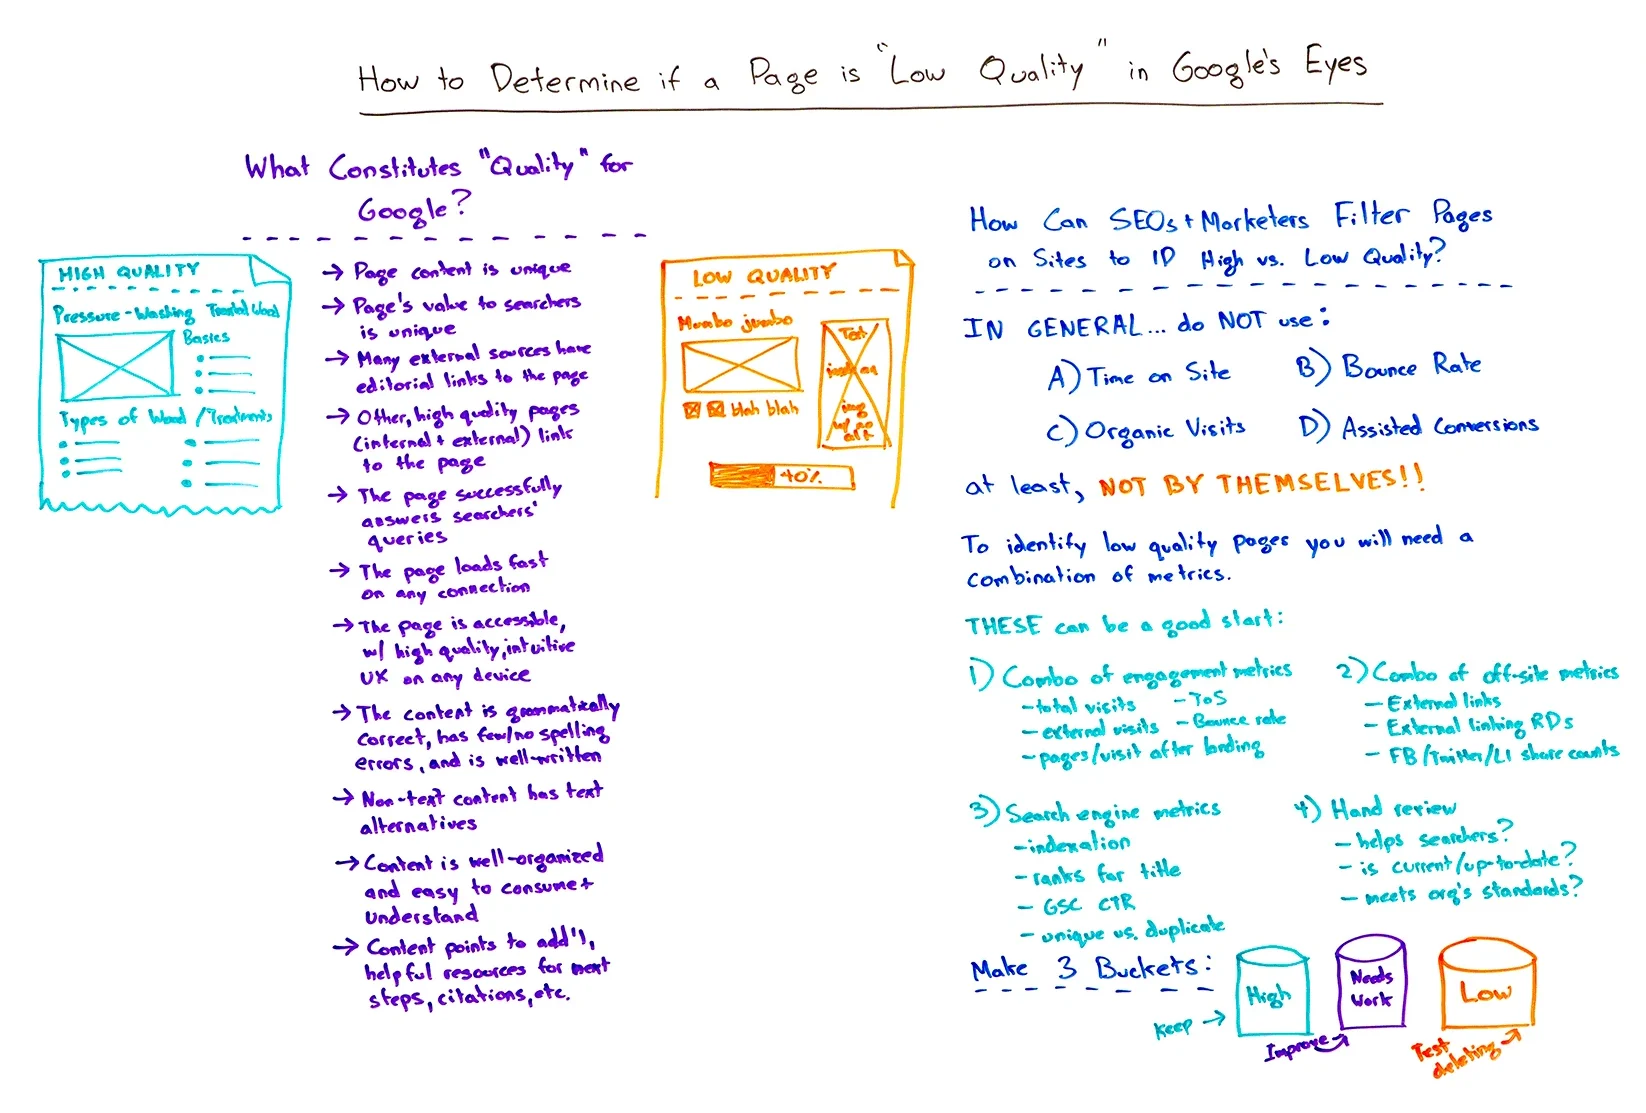 How to Determine if a Page is "Low Quality" in Google's Eyes
What Constitutes "Quality" for
Google?
HIGH QUALITY
Pressure-Washing Treated Wood
Basics
Types of Wood/Treatments
→ Page content is unique
→ Page's value to searchers
is unique
→ Many external sources have
editorial links to the page
→ Other, high quality pages
(internal + external) link
to the page
→ The page successfully
answers searchers'
queries
→ The page loads fast
on any connection
→ The page is accessible,
w/ high quality, intuitive
UX on any device
→ The content is grammatically
correct, has few/no spelling
errors, and is well-written
→ Non-text content has text
alternatives
→ Content is well-organized
and easy to consume +
understand
→ Content points to add'l,
helpful resources for next
steps, citations, etc.
LOW QUALITY
Mumbo jumbo
blah blah
Text
inside an
img
w/ no
alt
40%
How Can SEOs + Marketers Filter Pages
on Sites to ID High vs. Low Quality?
IN GENERAL... do NOT use:
A) Time on Site
B) Bounce Rate
C) Organic Visits
D) Assisted Conversions
at least, NOT BY THEMSELVES!!
To identify low quality pages you will need a
combination of metrics.
THESE can be a good start:
1) Combo of engagement metrics
- total visits - ToS
- external visits - Bounce rate
- pages/visit after landing
2) Combo of off-site metrics
- External links
- External linking RDs
- FB/Twitter/LI share counts
3) Search engine metrics
- indexation
- ranks for title
- GSC CTR
- unique vs. duplicate
4) Hand review
- helps searchers?
- is current/up-to-date?
- meets org's standards?
Make 3 Buckets:
High
Needs
Work
Low
Keep →
Improve
Test
deleting